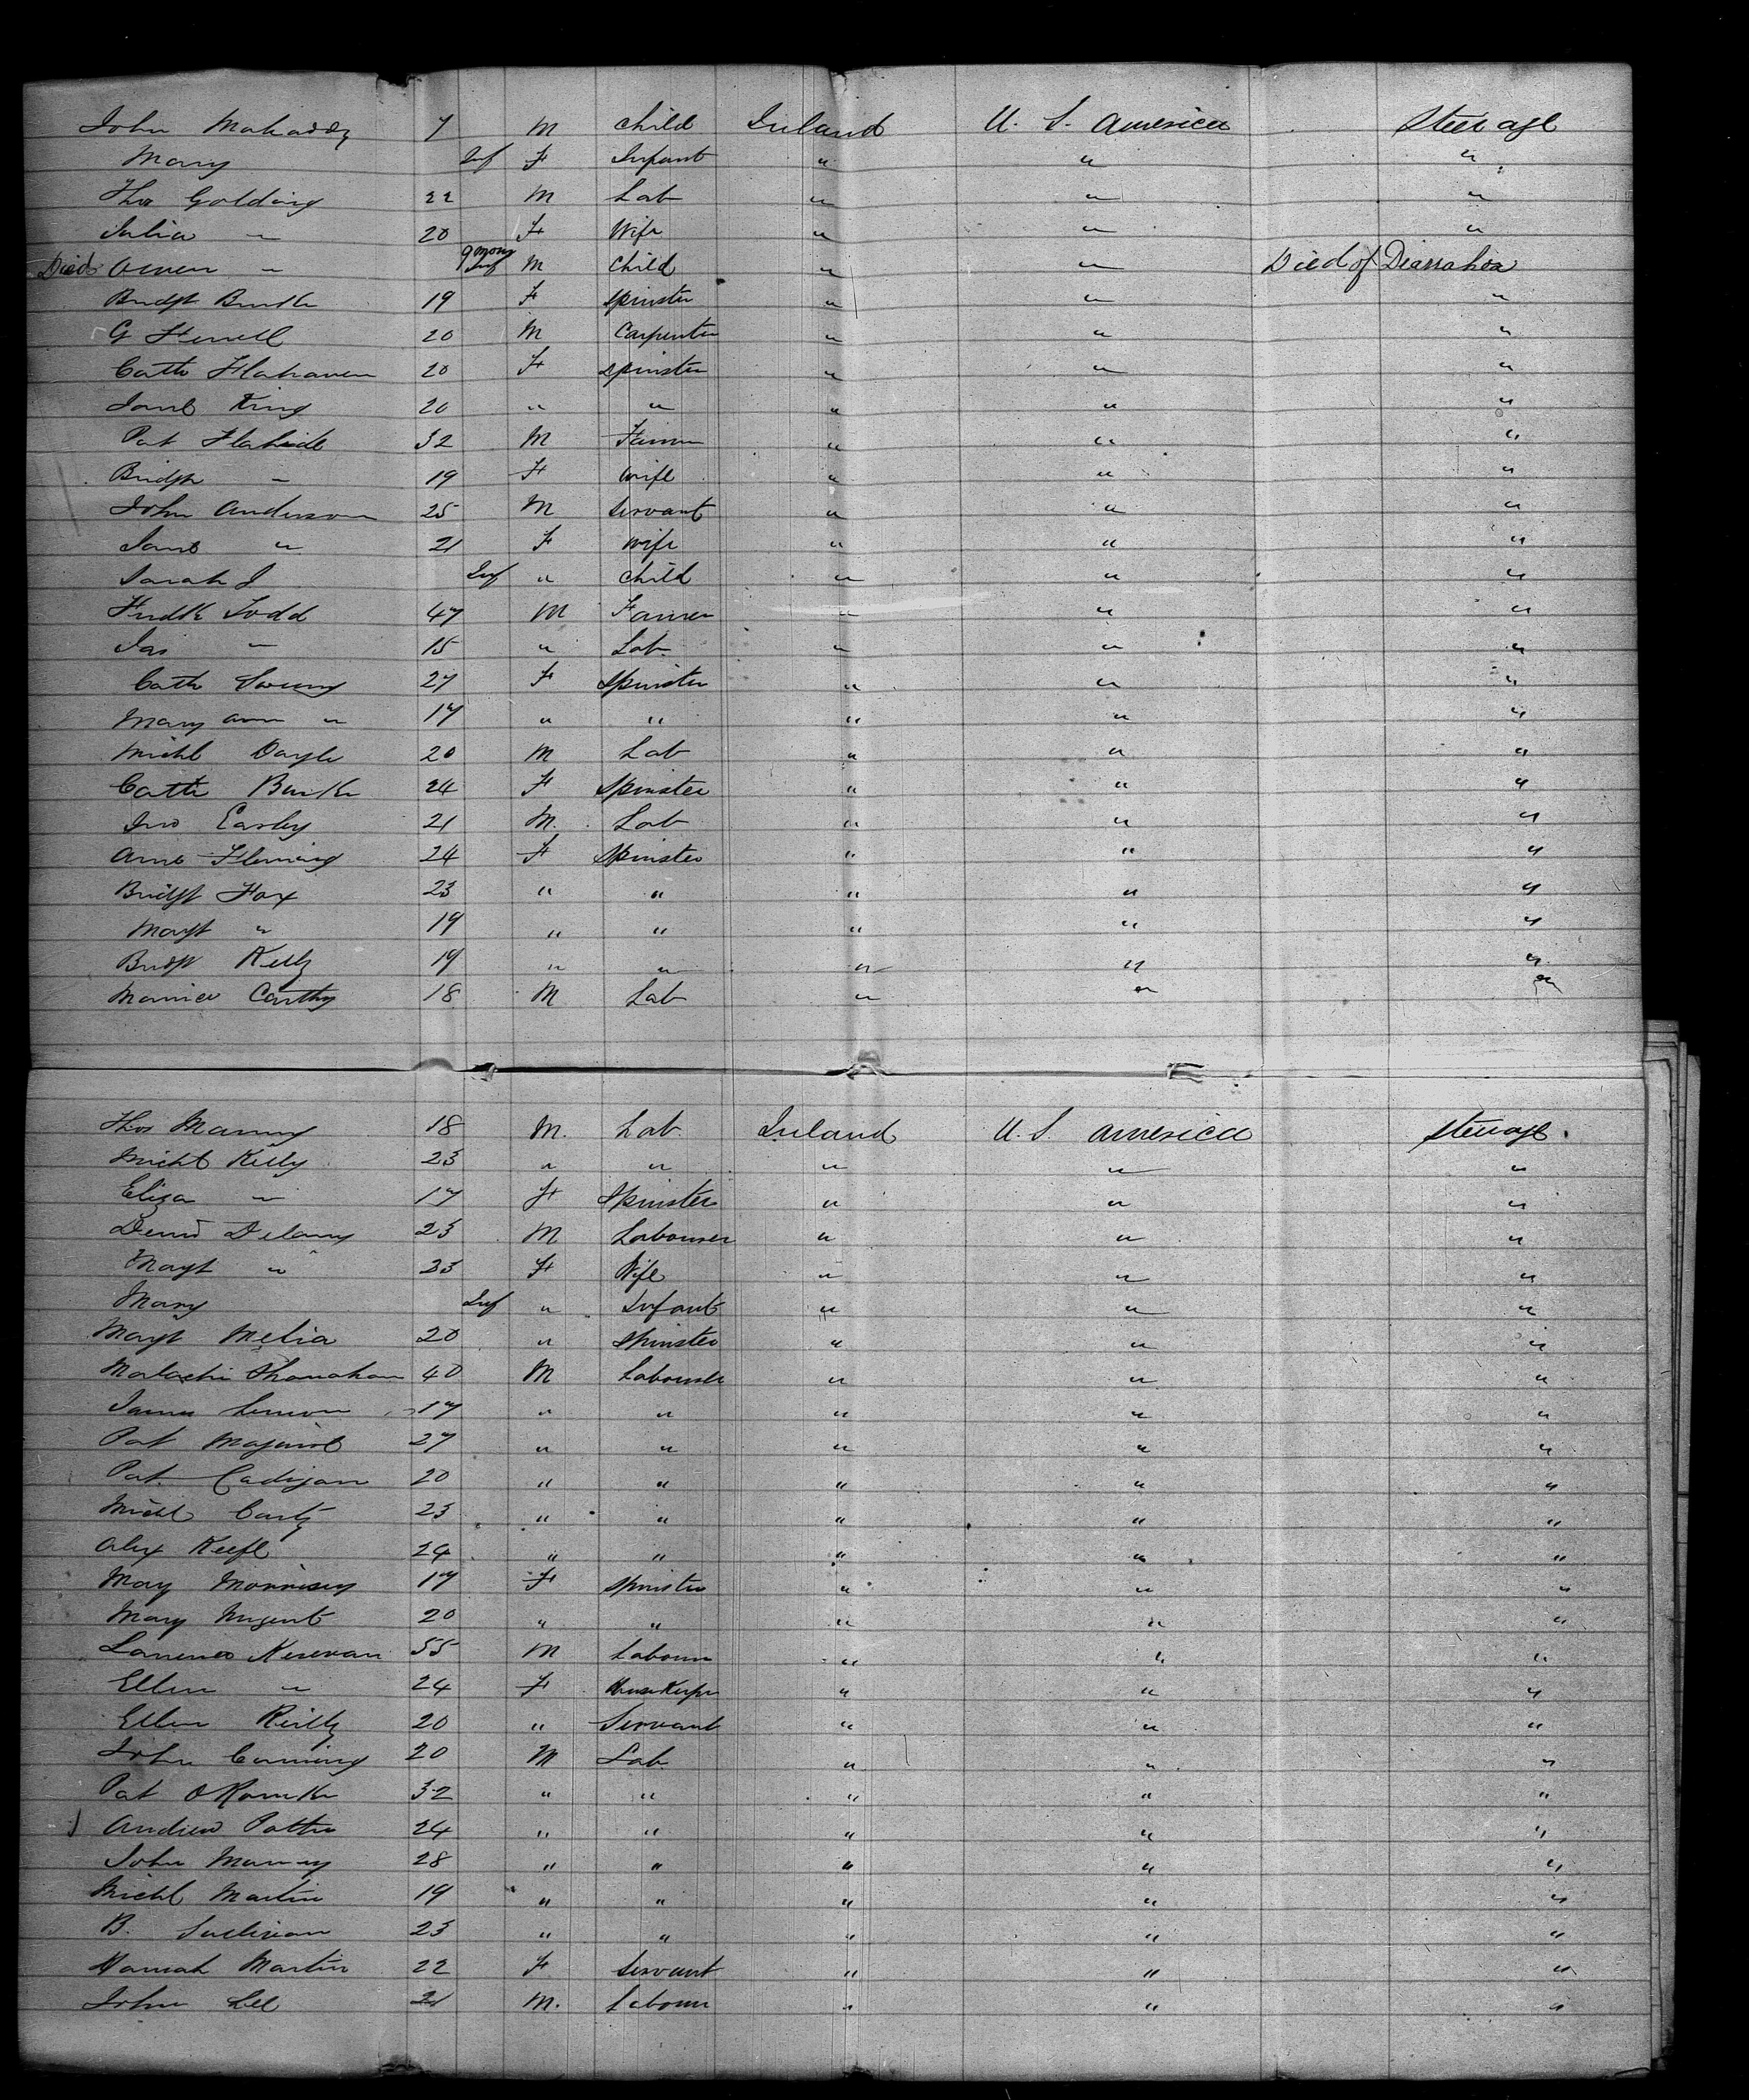 John Mahaddy 7 M child Ireland U. S. America Steerage
Mary Inf F Infant " " "
Thos Golding 22 M Lab " " "
Julia " 20 F Wife " " "
Died Owen " 9 mons Inf M Child " " Died of Diarrahea
Bridgt Burke 19 F Spinster " " "
G 20 M Carpenter " " "
Cath Flahaven 20 F Spinster " " "
Jane King 20 " " " " "
Pat 32 M Farmer " " "
Bridgt " 19 F Wife " " "
John Anderson 25 M Servant " " "
Jane " 21 F Wife " " "
Sarah J Inf " Child " " "
Fredk Todd 47 M Farmer " " "
Jas " 15 " Lab " " "
Cath Sweeny 27 F Spinster " " "
Mary Ann " 17 " " " " "
Michl Doyle 20 M Lab " " "
Cath Burke 24 F Spinster " " "
Jno Easley 21 M. Lab " " "
Anne Fleming 24 F Spinster " " "
Bridgt Fox 23 " " " " "
Margt " 19 " " " " "
Bridgt Kelly 19 " " " " "
Maurice Carthy 18 M Lab " " "
Thos Manny 18 M. Lab. Ireland U. S. America Steerage.
Michl Kelly 23 " " " " "
Eliza " 17 F Spinster " " "
Denis Delany 23 M Labourer " " "
Margt " 23 F Wife " " "
Mary Inf " Infant " " "
Margt Melia 20 " Spinster " " "
Malachi Shanahan 40 M Labourer " " "
James Lennon 17 " " " " "
Pat Maguire 27 " " " " "
Pat. Cadigan 20 " " " " "
Michl Carty 23 " " " " "
Alex Keefe 24 " " " " "
Mary Morrissey 17 F Spinster " " "
Mary Nugent 20 " " " " "
Lawrence Kerevan 55 M Labourer " " "
Ellen " 24 F HouseKeeper " " "
Ellen Reilly 20 " Servant " " "
John Canning 20 M Lab " " "
Pat ORourke 32 " " " " "
Andrew Potter 24 " " " " "
John 28 " " " " "
Michl Martin 19 " " " " "
B. Sullivan 23 " " " " "
Hannah Martin 22 F Servant " " "
John Lee 21 M. Labourer " " "